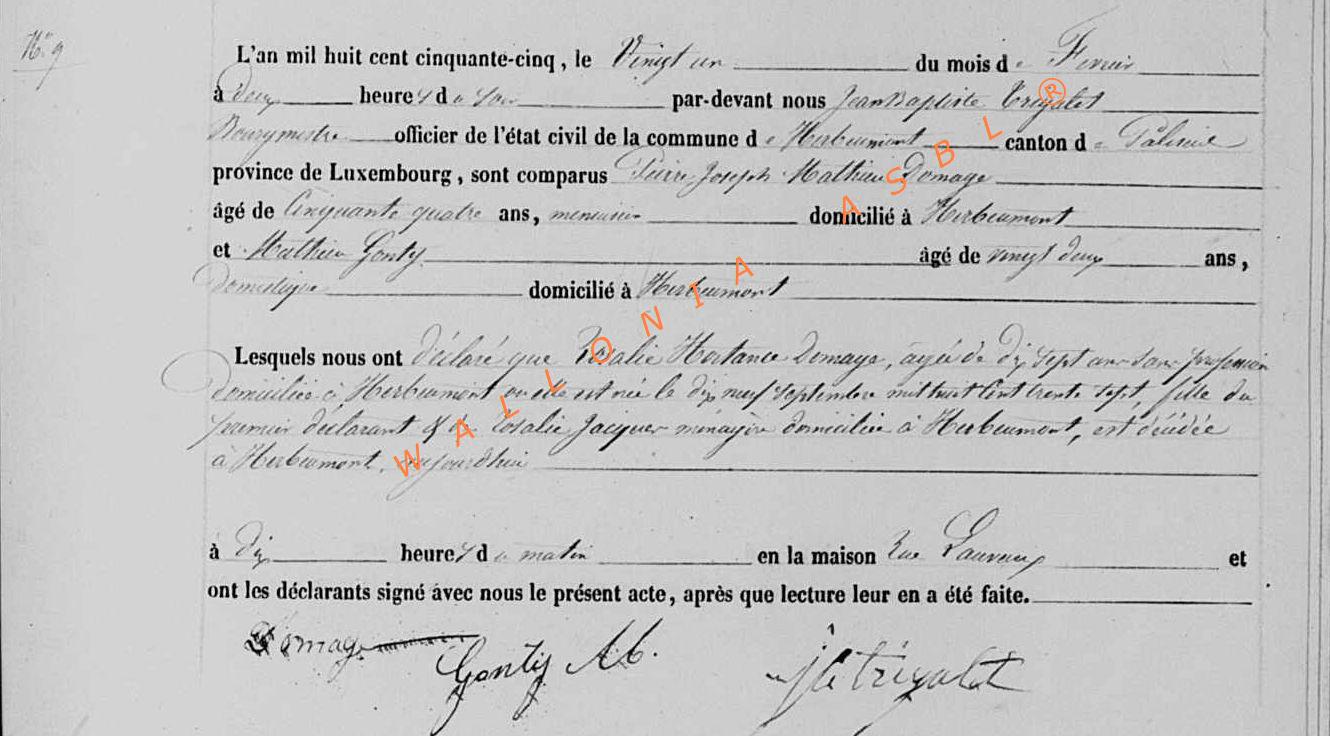 N° 9
L'an mil huit cent cinquante-cinq, le Vingt un du mois de Fevrier
à deux heures du soir par-devant nous Jean Baptiste Trigalet
Bourgmestre officier de l'état civil de la commune de Herbeumont canton de Paliseul
province de Luxembourg, sont comparus Pierre Joseph Mathieu Domage
âgé de Cinquante quatre ans, menuisier domicilié à Herbeumont
et Mathieu Gonty âgé de vingt deux ans,
Domestique domicilié à Herbeumont
Lesquels nous ont déclaré que Rosalie Hortance Domage, agée de dix sept ans sans profession
domiciliée à Herbeumont ou elle est née le dix neuf septembre mil huit cent trente sept, fille du
premier déclarant & de Rosalie Jacques ménagère domiciliée à Herbeumont, est décédée
à Herbeumont, aujourdhui
à dix heures du matin en la maison Rue et
ont les déclarants signé avec nous le présent acte, après que lecture leur en a été faite.
Domage Gontij M. JB Trigalet
WALLONIA ASBL ®